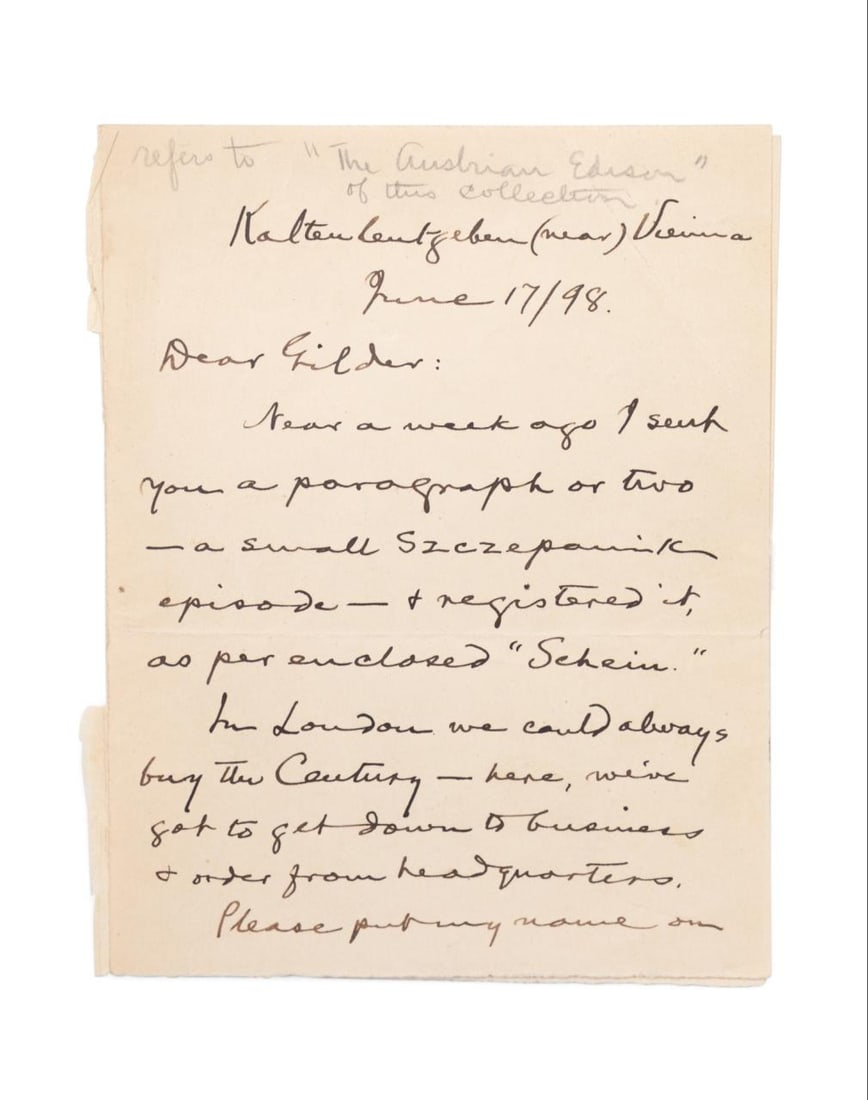 refers to "The Austrian Edison"
of this collection.
Kaltenleutgeben (near) Vienna
June 17/98.
Dear Gilder:
Near a week ago I sent
you a paragraph or two
— a small Szczepanik
episode — & registered it,
as per enclosed "Schein."
In London we could always
buy the Century — here, we've
got to get down to business
& order from headquarters.
Please put my name on